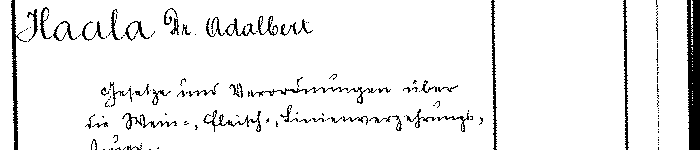 Haala Dr. Adalbert
Gesetze und Verordnungen über
die Wein-, Fleisch-, Linienverzehrungs-,